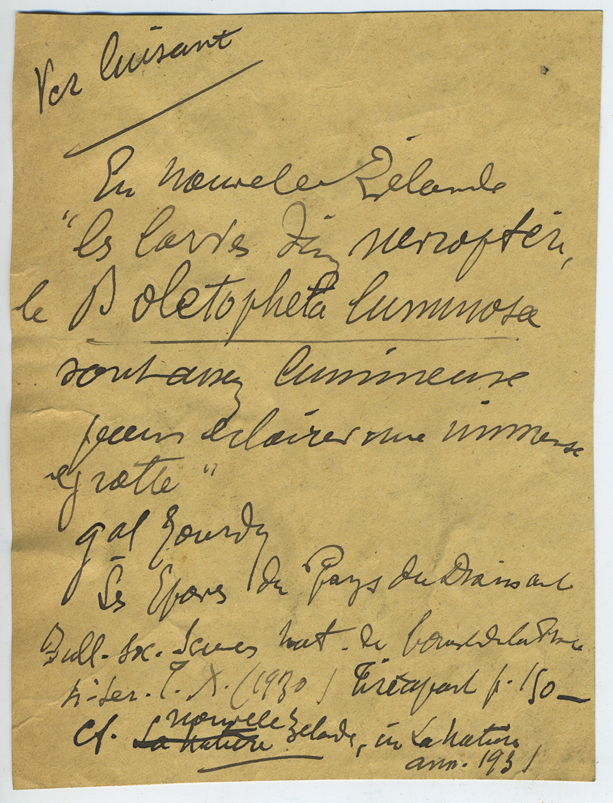 Ver luisant
En Nouvelle Zélande
"les larves d'un nevroptère,
le Boletopheta luminosa
sont assez lumineuse
pour éclairer une immense
grotte"
gal
Les du Pays du
Bull. Soc. Scienes nat. de
ser. T. X. (1930) Tiréapart p. 150 —
Cf. La Nature Nouvelle Zelande, in La Nature
ann. 1931